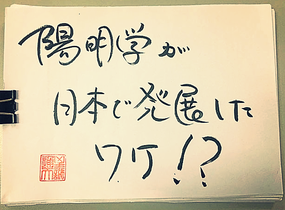 陽明学が
日本で発展した
ワケ!?